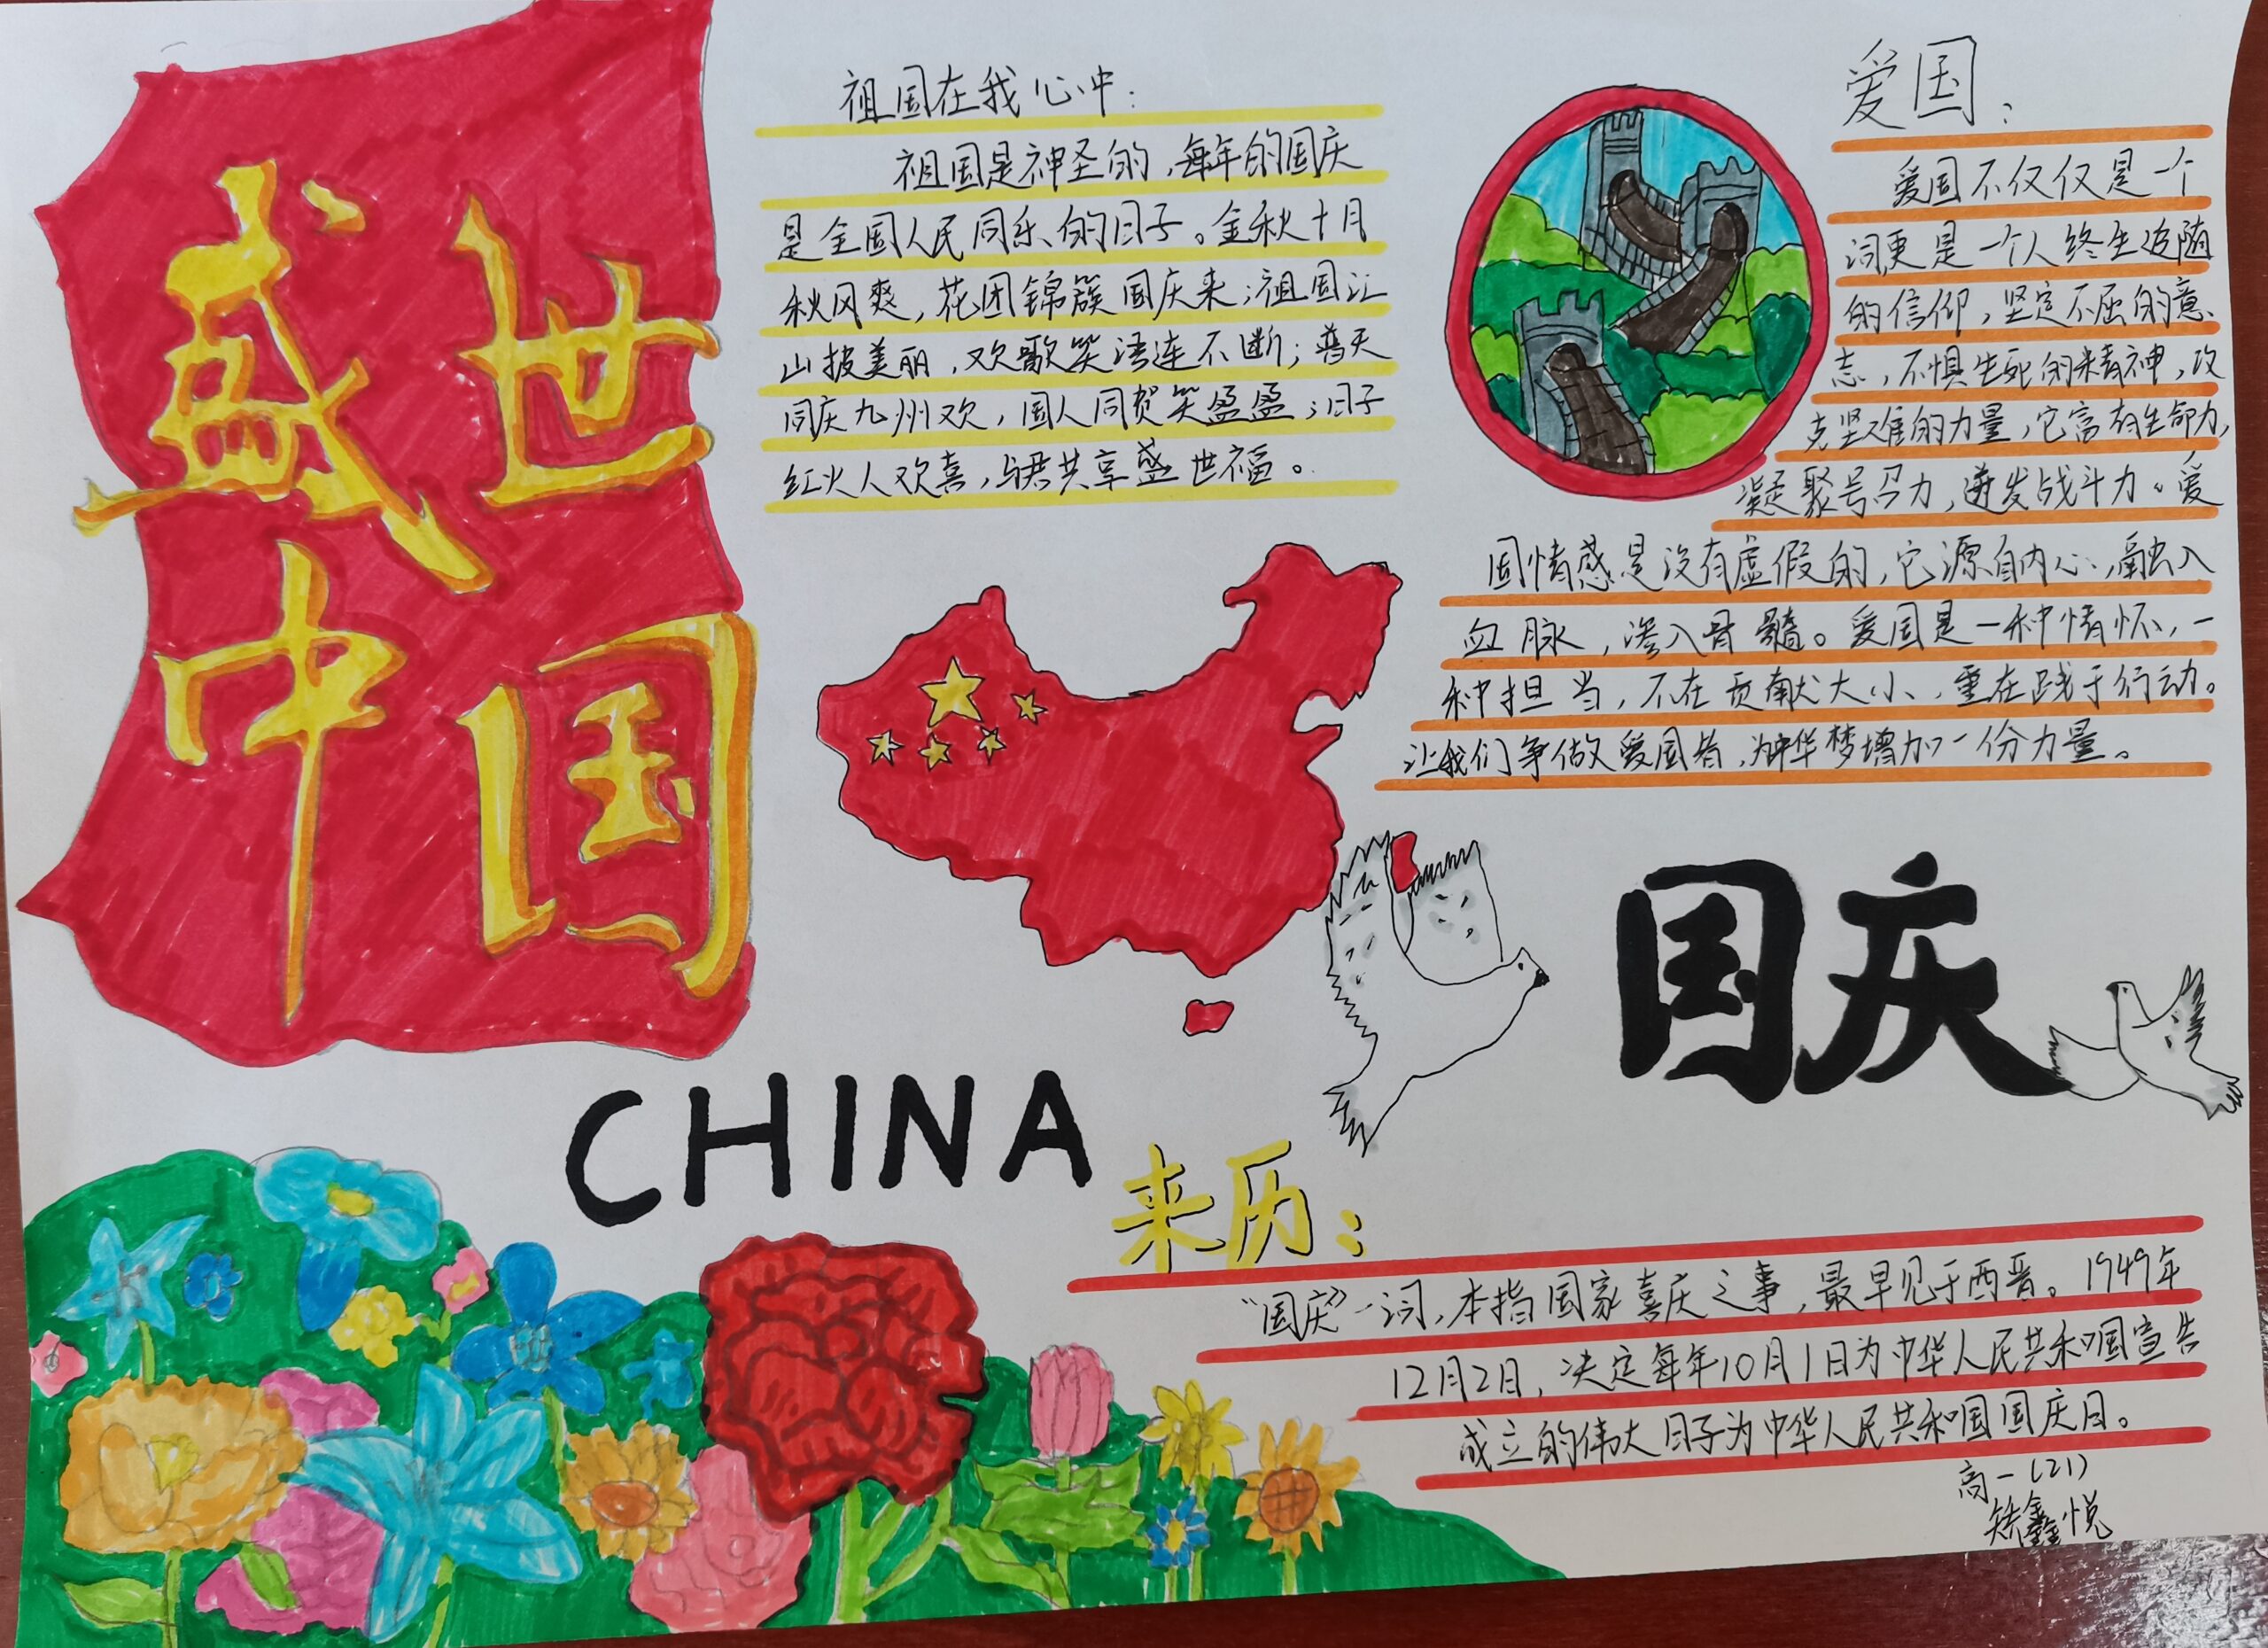 盛世
中国
祖国在我心中:
祖国是神圣的,每年的国庆
是全国人民同乐的日子。金秋十月
秋风爽,花团锦簇国庆来;祖国江
山披美丽,欢歌笑语连不断;普天
同庆九州欢,国人同贺笑盈盈;日子
红火人欢喜,与君共享盛世福。
爱国:
爱国不仅仅是一个
词,更是一个人终生追随
的信仰,坚定不屈的意
志,不惧生死的精神,攻
克坚难的力量,它富有生命力,
凝聚号召力,迸发战斗力。爱
国情感是没有虚假的,它源自内心,融入
血脉,渗入骨髓。爱国是一种情怀,一
种担当,不在贡献大小,重在践于行动。
让我们争做爱国者,为中华梦增加一份力量。
国庆
CHINA
来历:
“国庆”一词,本指国家喜庆之事,最早见于西晋。1949年
12月2日,决定每年10月1日为中华人民共和国宣告
成立的伟大日子为中华人民共和国国庆日。
高一(21)
鑫悦